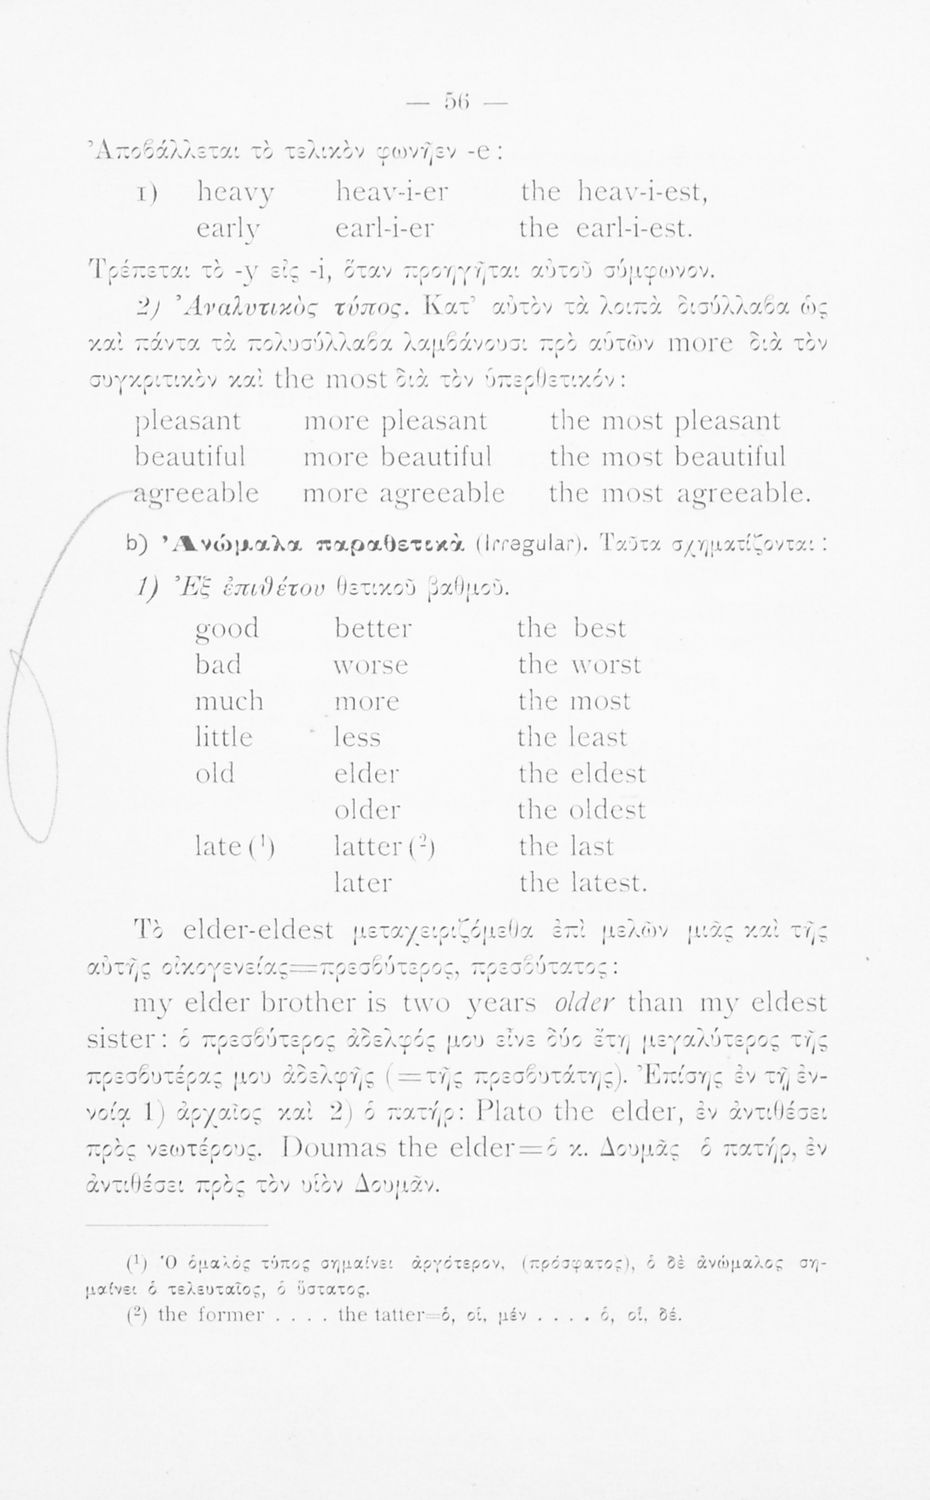 — 56 —
Ἀποβάλλεται τὸ τελικὸν φωνῆεν -e :
1) heavy heav-i-er the heav-i-est,
early earl-i-er the earl-i-est.
Τρέπεται τὸ -y εἰς -i, ὅταν προηγῆται αὐτοῦ σύμφωνον.
2) Ἀναλυτικὸς τύπος. Κατ' αὐτὸν τὰ λοιπὰ δισύλλαβα ὡς
καὶ πάντα τὰ πολυσύλλαβα λαμβάνουσι πρὸ αὐτῶν more διὰ τὸν
συγκριτικὸν καὶ the most διὰ τὸν ὑπερθετικόν :
pleasant more pleasant the most pleasant
beautiful more beautiful the most beautiful
agreeable more agreeable the most agreeable.
b) Ἀνώμαλα παραθετικὰ (irregular). Ταῦτα σχηματίζονται :
1) Ἐξ ἐπιθέτου θετικοῦ βαθμοῦ.
good better the best
bad worse the worst
much more the most
little less the least
old elder the eldest
older the oldest
late (¹) latter (²) the last
later the latest.
Τὸ elder-eldest μεταχειριζόμεθα ἐπὶ μελῶν μιᾶς καὶ τῆς
αὐτῆς οἰκογενείας=πρεσβύτερος, πρεσβύτατος :
my elder brother is two years older than my eldest
sister : ὁ πρεσβύτερος ἀδελφός μου εἶνε δύο ἔτη μεγαλύτερος τῆς
πρεσβυτέρας μου ἀδελφῆς (=τῆς πρεσβυτάτης). Ἐπίσης ἐν τῇ ἐν-
νοίᾳ 1) ἀρχαῖος καὶ 2) ὁ πατήρ: Plato the elder, ἐν ἀντιθέσει
πρὸς νεωτέρους. Doumas the elder=ὁ κ. Δουμᾶς ὁ πατήρ, ἐν
ἀντιθέσει πρὸς τὸν υἱὸν Δουμᾶν.
(¹) Ὁ ὁμαλὸς τύπος σημαίνει ἀργότερον, (πρόσφατος), ὁ δὲ ἀνώμαλος ση-
μαίνει ὁ τελευταῖος, ὁ ὕστατος.
(²) the former . . . . the tatter=ὁ, οἱ, μέν . . . . ὁ, οἱ, δέ.